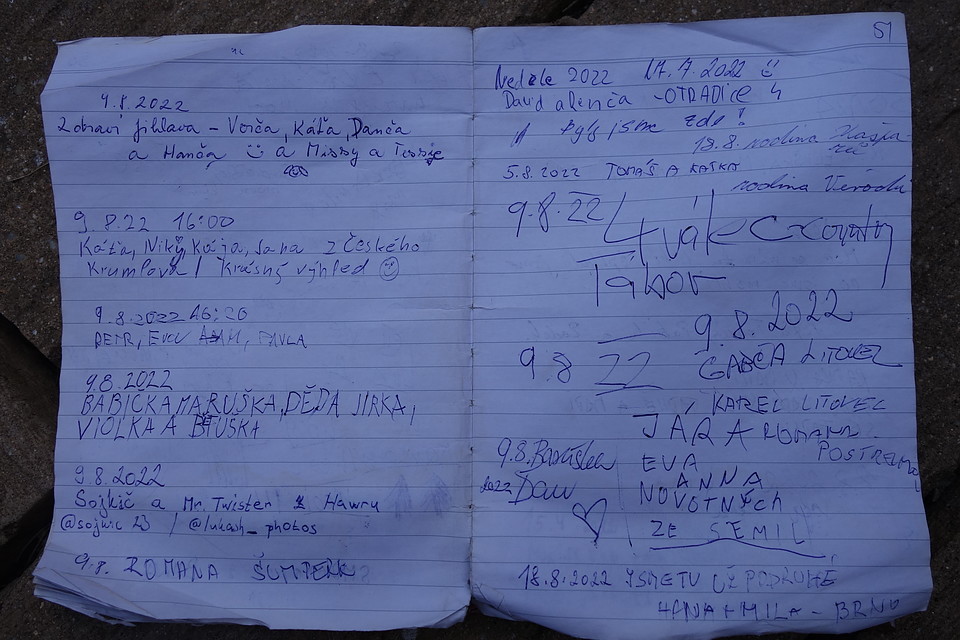 4.8.2022
Zdraví Jihlava - Verča, Káťa, Danča
a Hanča a Missy a Tessie
9.8.22 16:00
Káťa, Niky, Kája, Jana z Českého
Krumlova! Krásný výhled
9.8.2022 16:20
PETR, EVČA, ADAM, PAVLA
9.8.2022
BABIČKA MARUŠKA, DĚDA JIRKA,
VIOLKA A BĚTUŠKA
9.8.2022
Sojkič a Mr. Twister z Hawru
@sojkic 23 / @lukash_photos
9.8. ROMANA ŠUMPERK
51
Neděle 2022 17.7.2022
David a Lenča - OTRADICE
Byly jsme zde!
18.8. rodina
5.8.2022 TOMÁŠ A KAŤKA
rodina
9.8.22
Tábor
9.8.2022
9.8 22
GÁBČA LITOVEL
KAREL LITOVEL
JÁRA ROMANA
9.8.
2022
EVA
ANNA
NOVOTNÝCH
ZE SEMIL
18.8.2022 JSME TU UŽ PODRUHÉ
HANA + MILA - BRNO